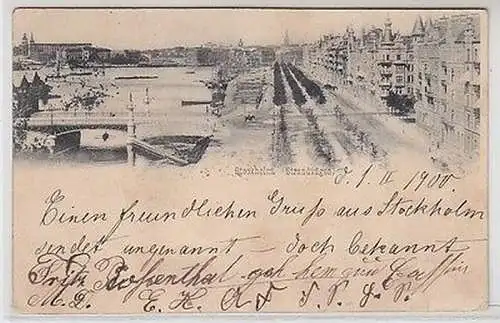 Stockholm. Strandvägen.
d. 1. II 1900.
Einen freundlichen Gruß aus Stockholm
sendet ungenannt – doch bekannt
Fritz Rosenthal
M. L. E. H. A F S. P. L. P.